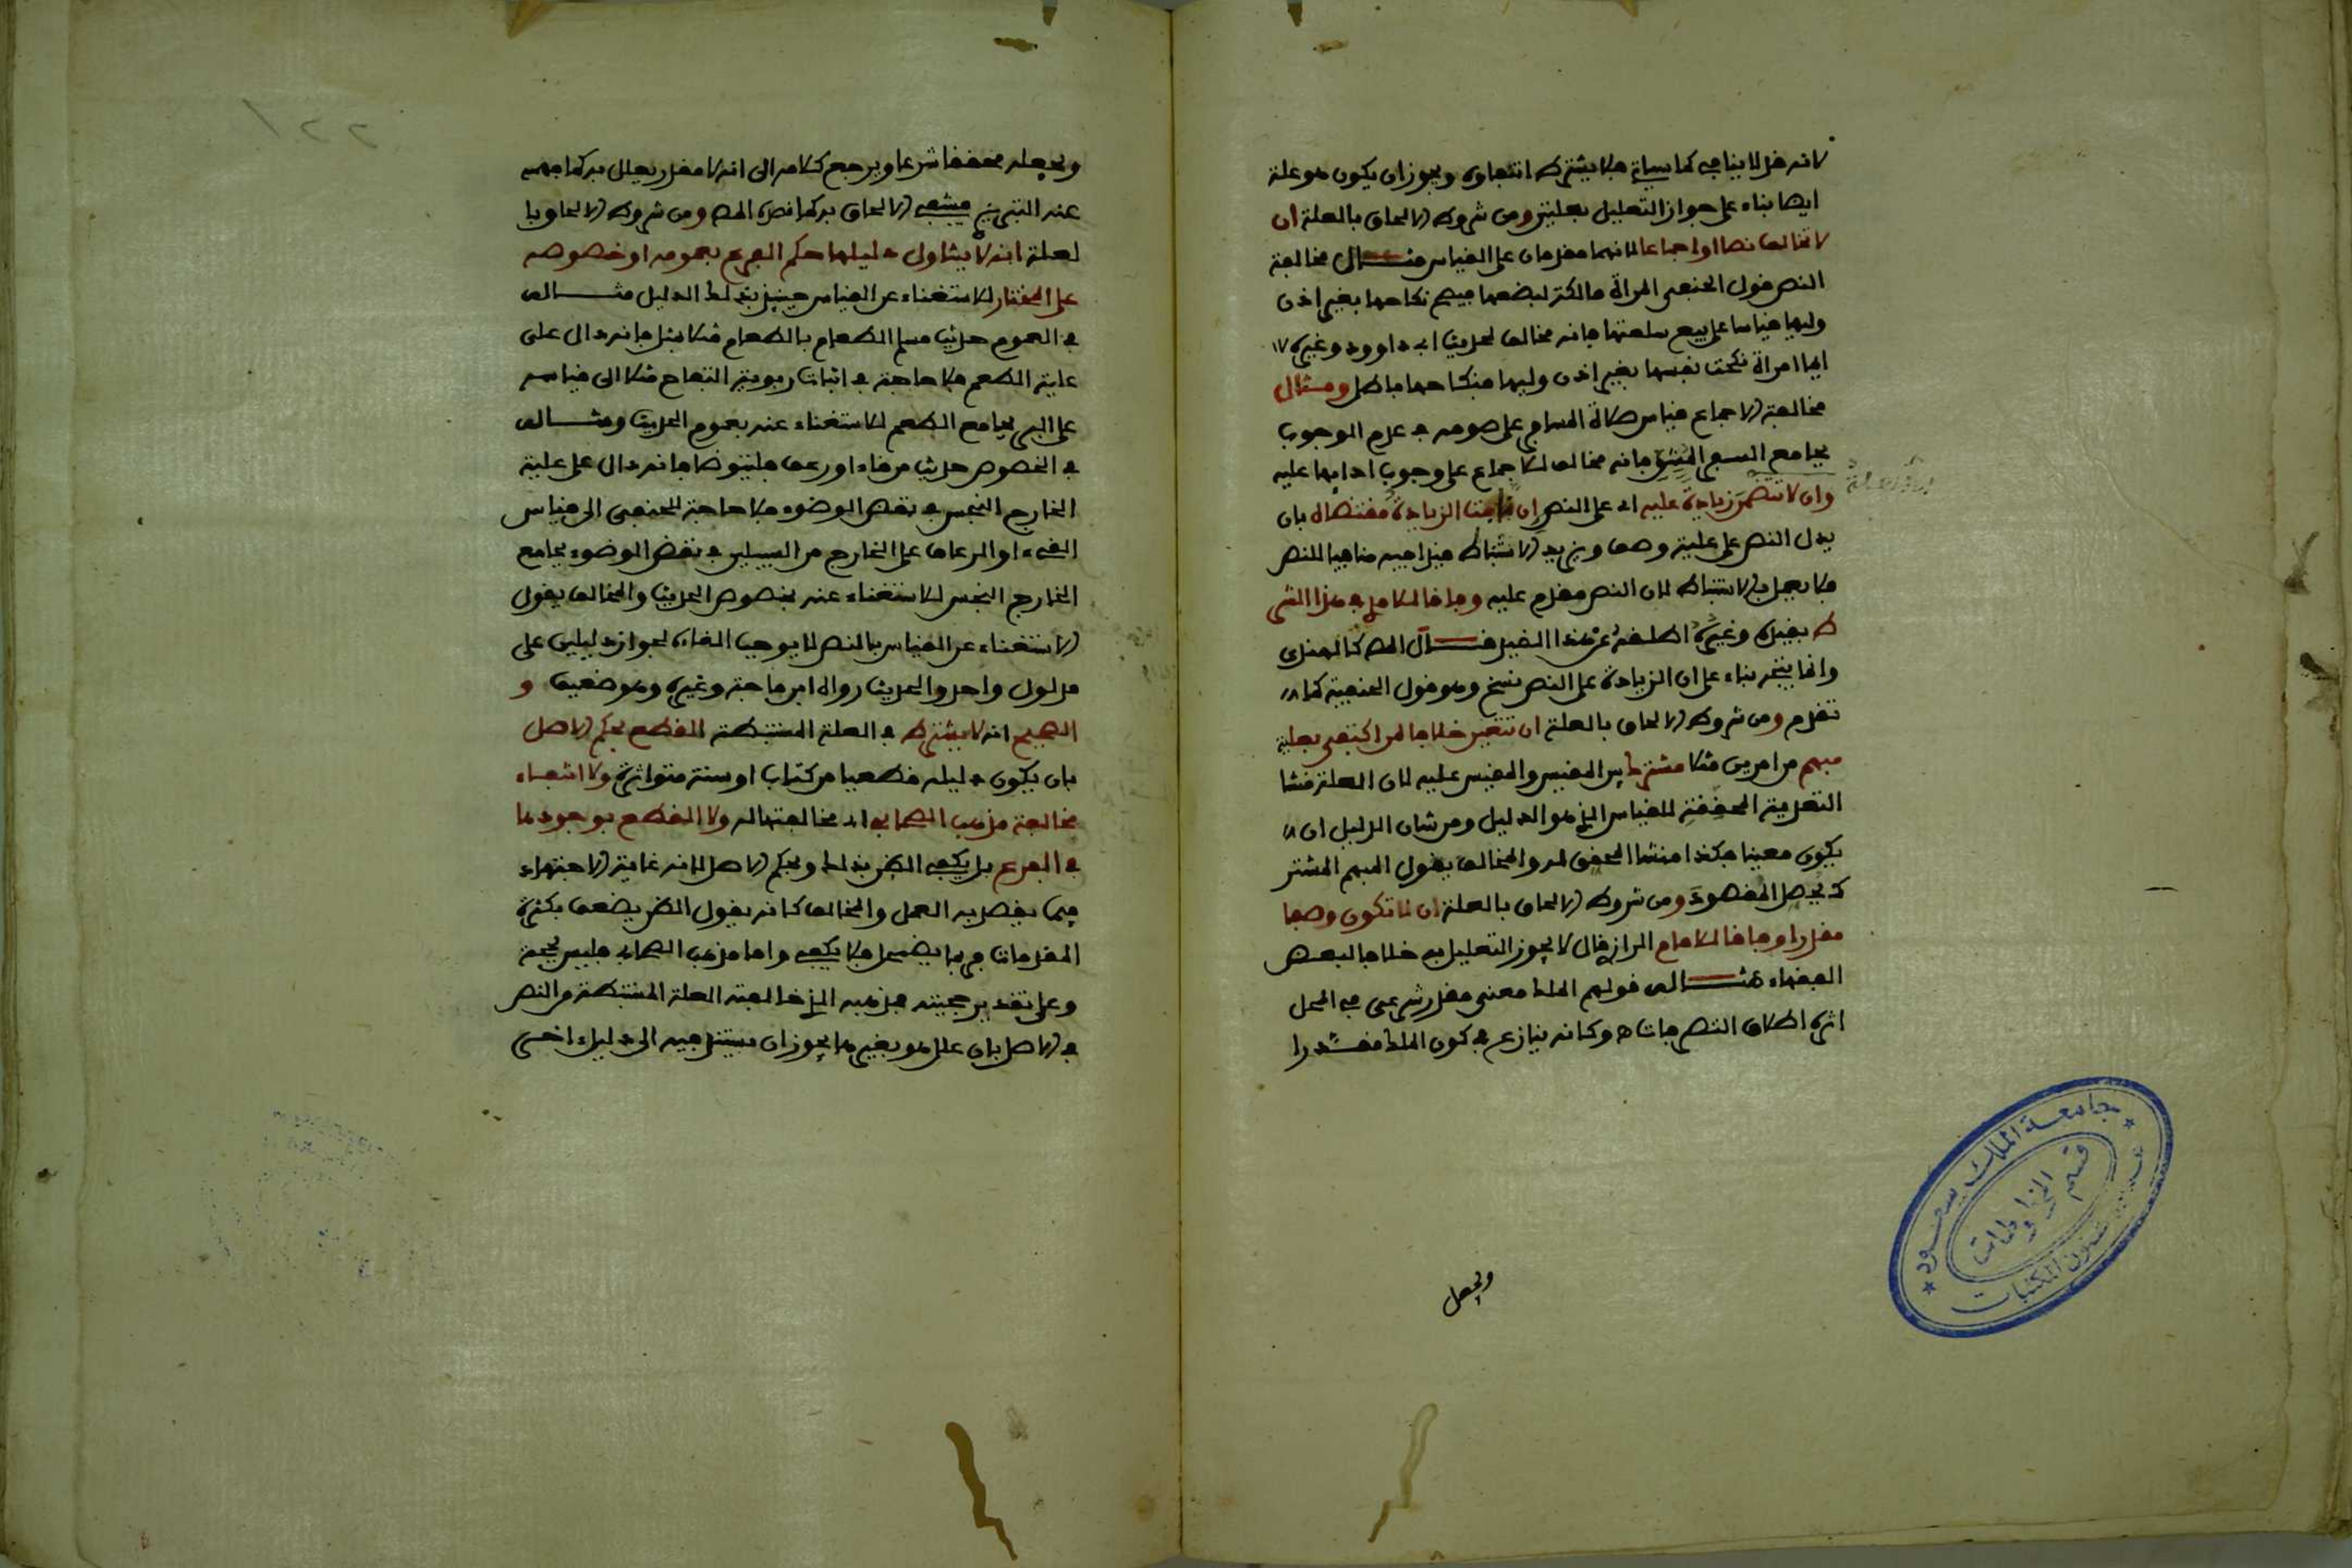 لانه قد لا ينافيه كما سياتي فلا يشترط انتفاوه ويجوز ان يكون هو علة
ايضا بناء على جواز التعليل بعلتين ومن شروط الالحاق بالعلة ان
لا تخالف نصا او اجماعا لانهما مقدمان على القياس مثال مخالفة
النص قول الحنفي المراة مالكة لبضعها فيصح نكاحها بغير اذن
وليها قياسا على بيع سلعتها فانه مخالف لحديث ابي داوود وغيره
ايما امراة نكحت نفسها بغير اذن وليها فنكاحها باطل ومثال
مخالفة الاجماع قياس صلاة المسافر على صومه في عدم الوجوب
بجامع السفر المشق فانه مخالف للاجماع على وجوب ادايها عليه
وان لا تتضمن زيادة عليه اي على النص ان نافت الزيادة مقتضاه بان
يدل النص على علية وصف ويزيد الاستنباط قيدا فيه منافيا للنص
فلا يعمل بالاستنباط لان النص مقدم عليه وفاقا للامدي في هذا الشر
ط بقيده وغيره اطلقه عن هذا القيد قال المص كالهندي
وانما يتجه بناء على ان الزيادة على النص نسخ وهو قول الحنفية كما
تقدم ومن شروط الالحاق بالعلة ان تتعين خلافا لمن اكتفى بعلية
مبهم من امرين مثلا مشترط بين المقيس والمقيس عليه لان العلة منشا
التعدية المحققة للقياس الذي هو الدليل ومن شان الدليل ان
يكون معينا فكذا منشا المحقق له والمخالف يقول المبهم المشتر
ك يحصل المقصود ومن شروط الالحاق بالعلة ان لا تكون وصفا
مقدرا وفاقا للامام الرازي قال لا يجوز التعليل به خلافا لبعض
الفقهاء مثاله قولهم الملك معنى مقدر شرعي في المحل
اثره اطلاق التصرفات وكانه ينازع في كون الملك مقدرا
ويجعل
جامعة الملك سعود
قسم المخطوطات
شئون المكتبات
٢٢١
ويجعله محققا شرعا ويرجع كلامه الى انه لا مقدر يعلل به كما فهمه
عنه التبريزي فينتفي الالحاق به كما قصده المص ومن شروط الالحاق با
لعلة انه لا يتناول دليلها حكم الفرع بعمومه او خصوصه
على المختار للاستغناء عن القياس حينيذ بذلك الدليل مثاله
في العموم حديث مسلم الطعام بالطعام مثلا بمثل فانه دال على
علية الطعم فلا حاجة في اثبات ربوية التفاح مثلا الى قياسه
على البر بجامع الطعم للاستغناء عنه بعموم الحديث ومثاله
في الخصوص حديث من قاء او رعف فليتوضا فانه دال على علية
الخارج النجس في نقض الوضوء فلا حاجة للحنفي الى قياس
القيء او الرعاف على الخارج من السبيلين في نقض الوضوء بجامع
الخارج النجس للاستغناء عنه بخصوص الحديث والمخالف يقول
الاستغناء عن القياس بالنص لا يوجب الغاءه لجواز دليلين على
مدلول واحد والحديث رواه ابن ماجة وغيره وهو ضعيف و
الصحيح انه لا يشترط في العلة المستنبطة القطع بحكم الاصل
بان يكون دليله قطعيا من كتاب او سنة متواترة ولا انتفاء
مخالفة مذهب الصحابي اي مخالفتها له ولا القطع بوجودها
في الفرع بل يكفي الظن بذلك وبحكم الاصل لانه غاية الاجتهاد
فيما يقصد به العمل والمخالف كانه يقول الظن يضعف بكثرة
المقدمات فربما يضمحل فلا يكفي واما مذهب الصحابي فليس بحجة
وعلى تقدير حجيته فمذهبه الذي خالفته العلة المستنبطة من النص
في الاصل بان علل هو بغيرها يجوز ان يستند فيه الى دليل اخر